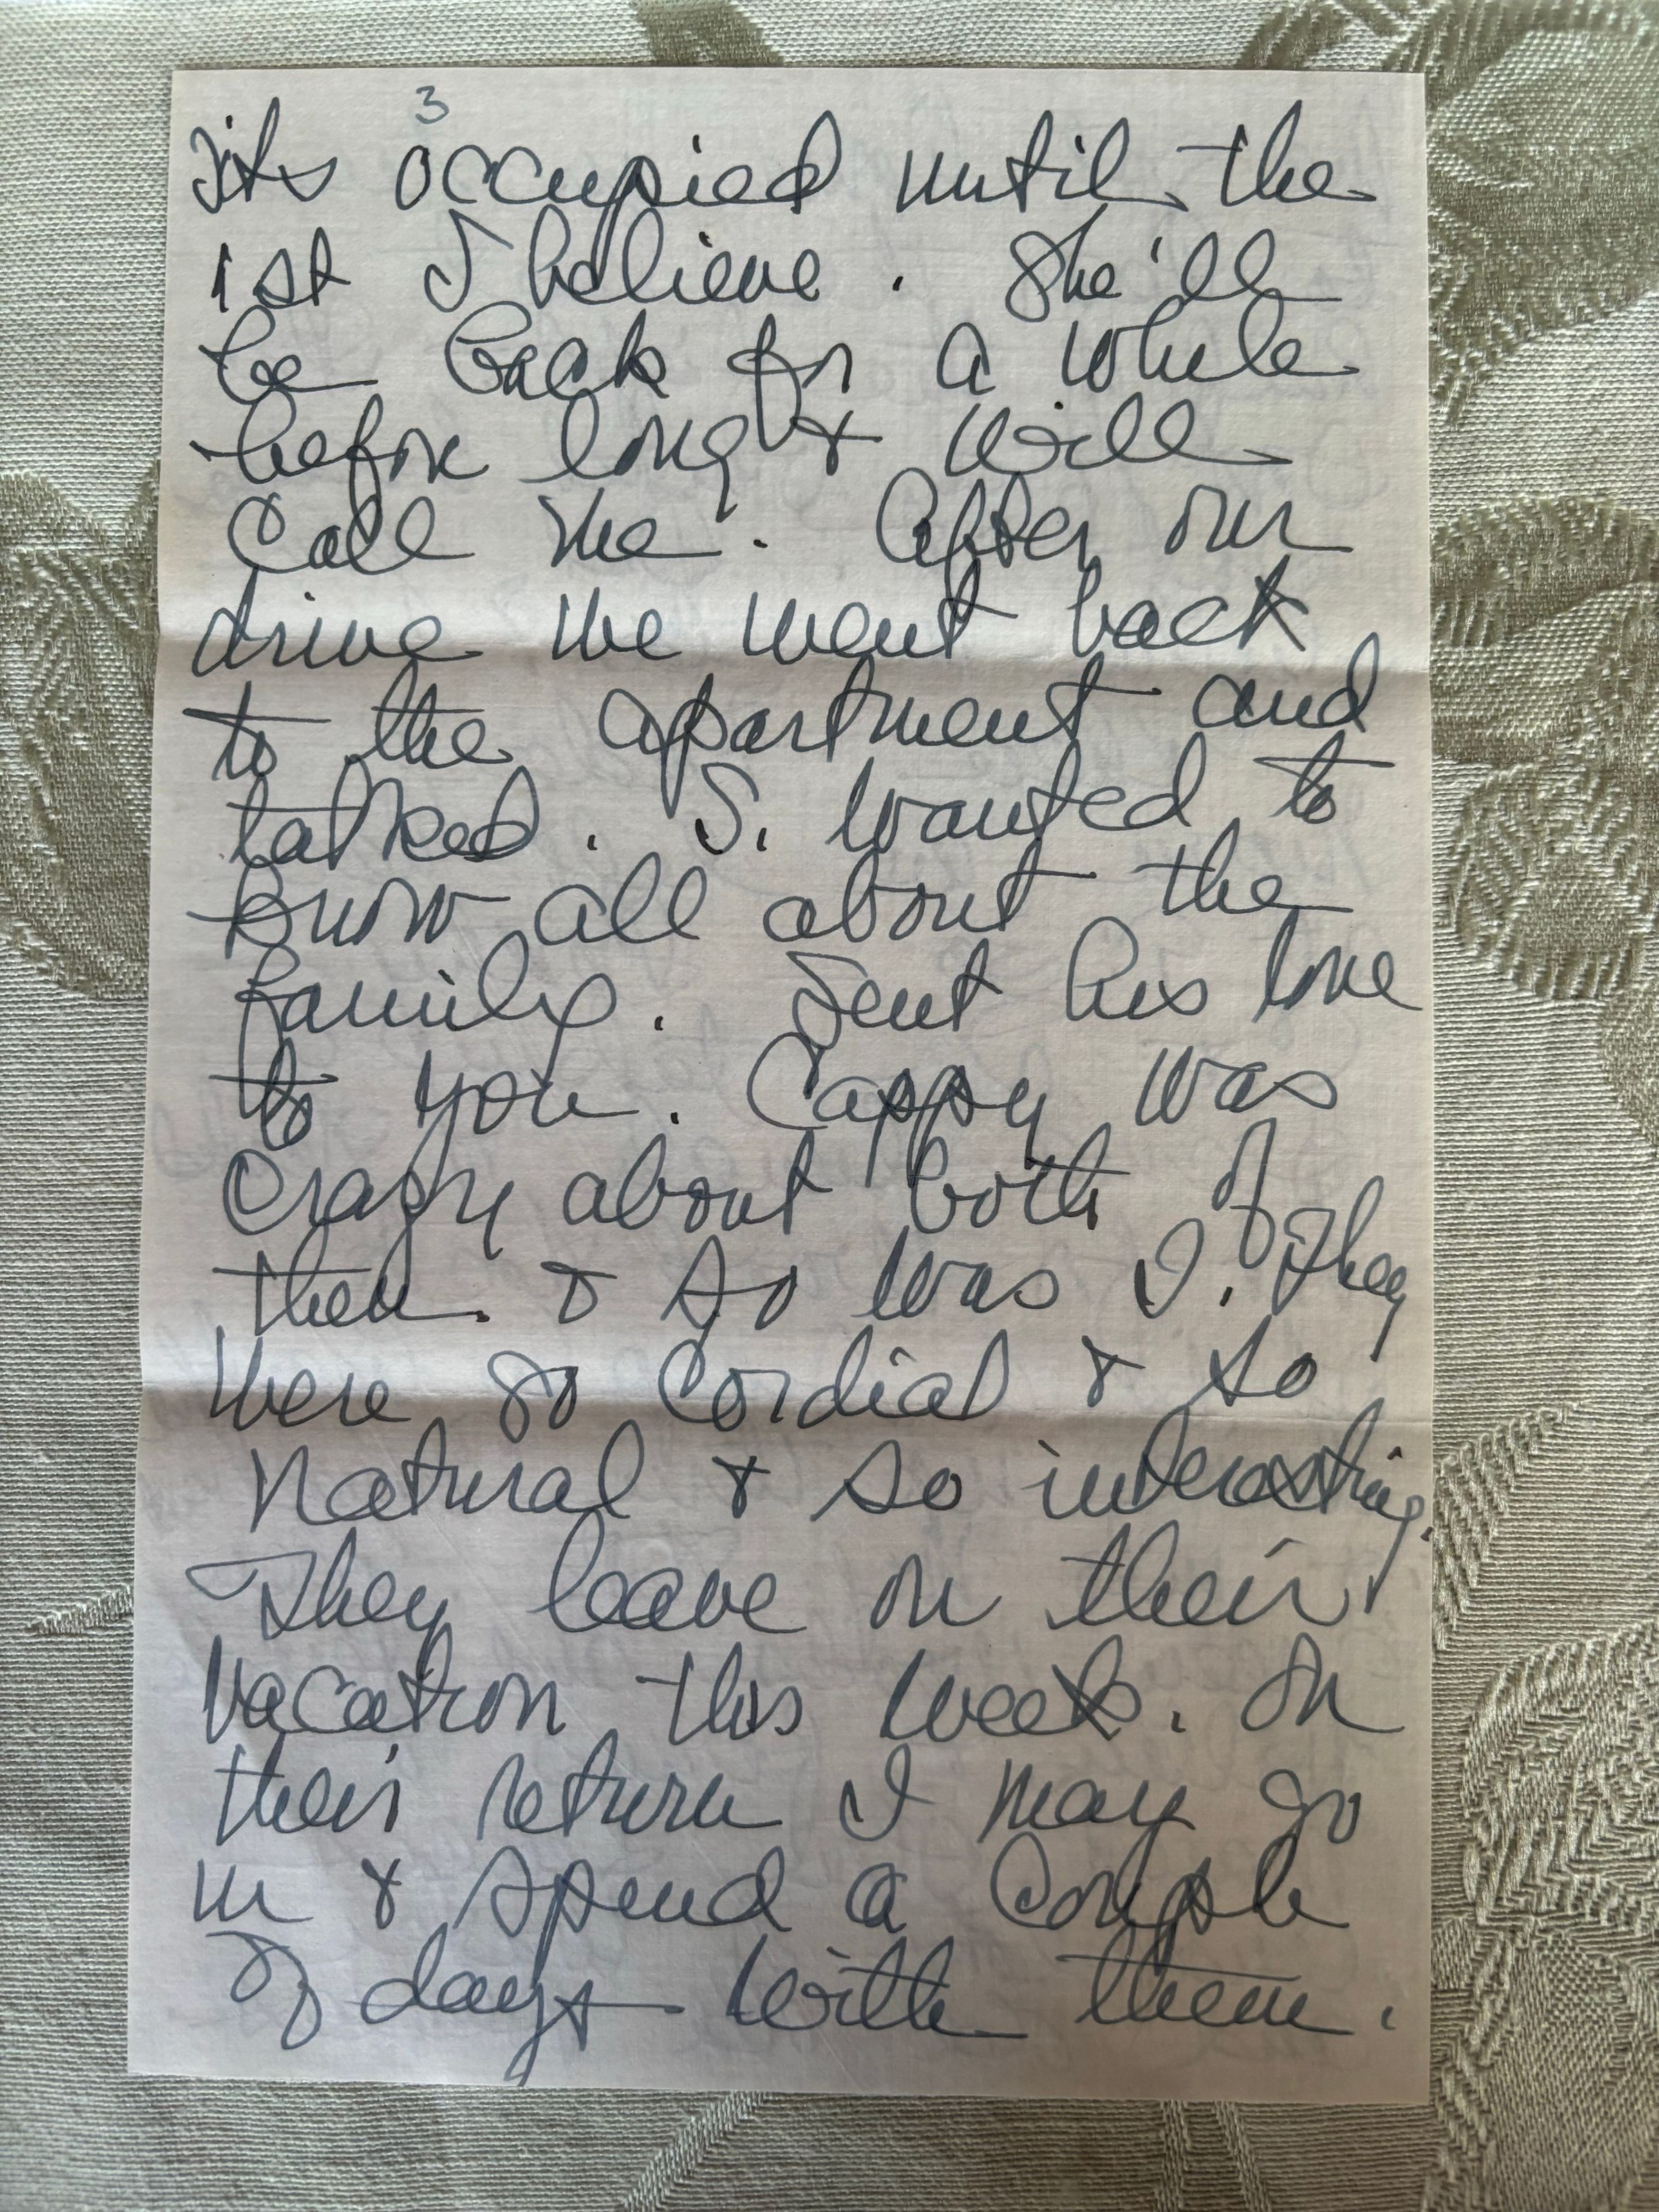 3
its occupied until the
1st I believe. She'll
be back for a while
before long & will
call me. After our
drive we went back
to the apartment and
talked. S. wanted to
know all about the
family. Sent his love
to you. Cappy was
crazy about both of
them & so was I. They
were so cordial & so
natural & so interesting.
They leave on their
vacation this week. On
their return I may go
in & spend a couple
of days with them.